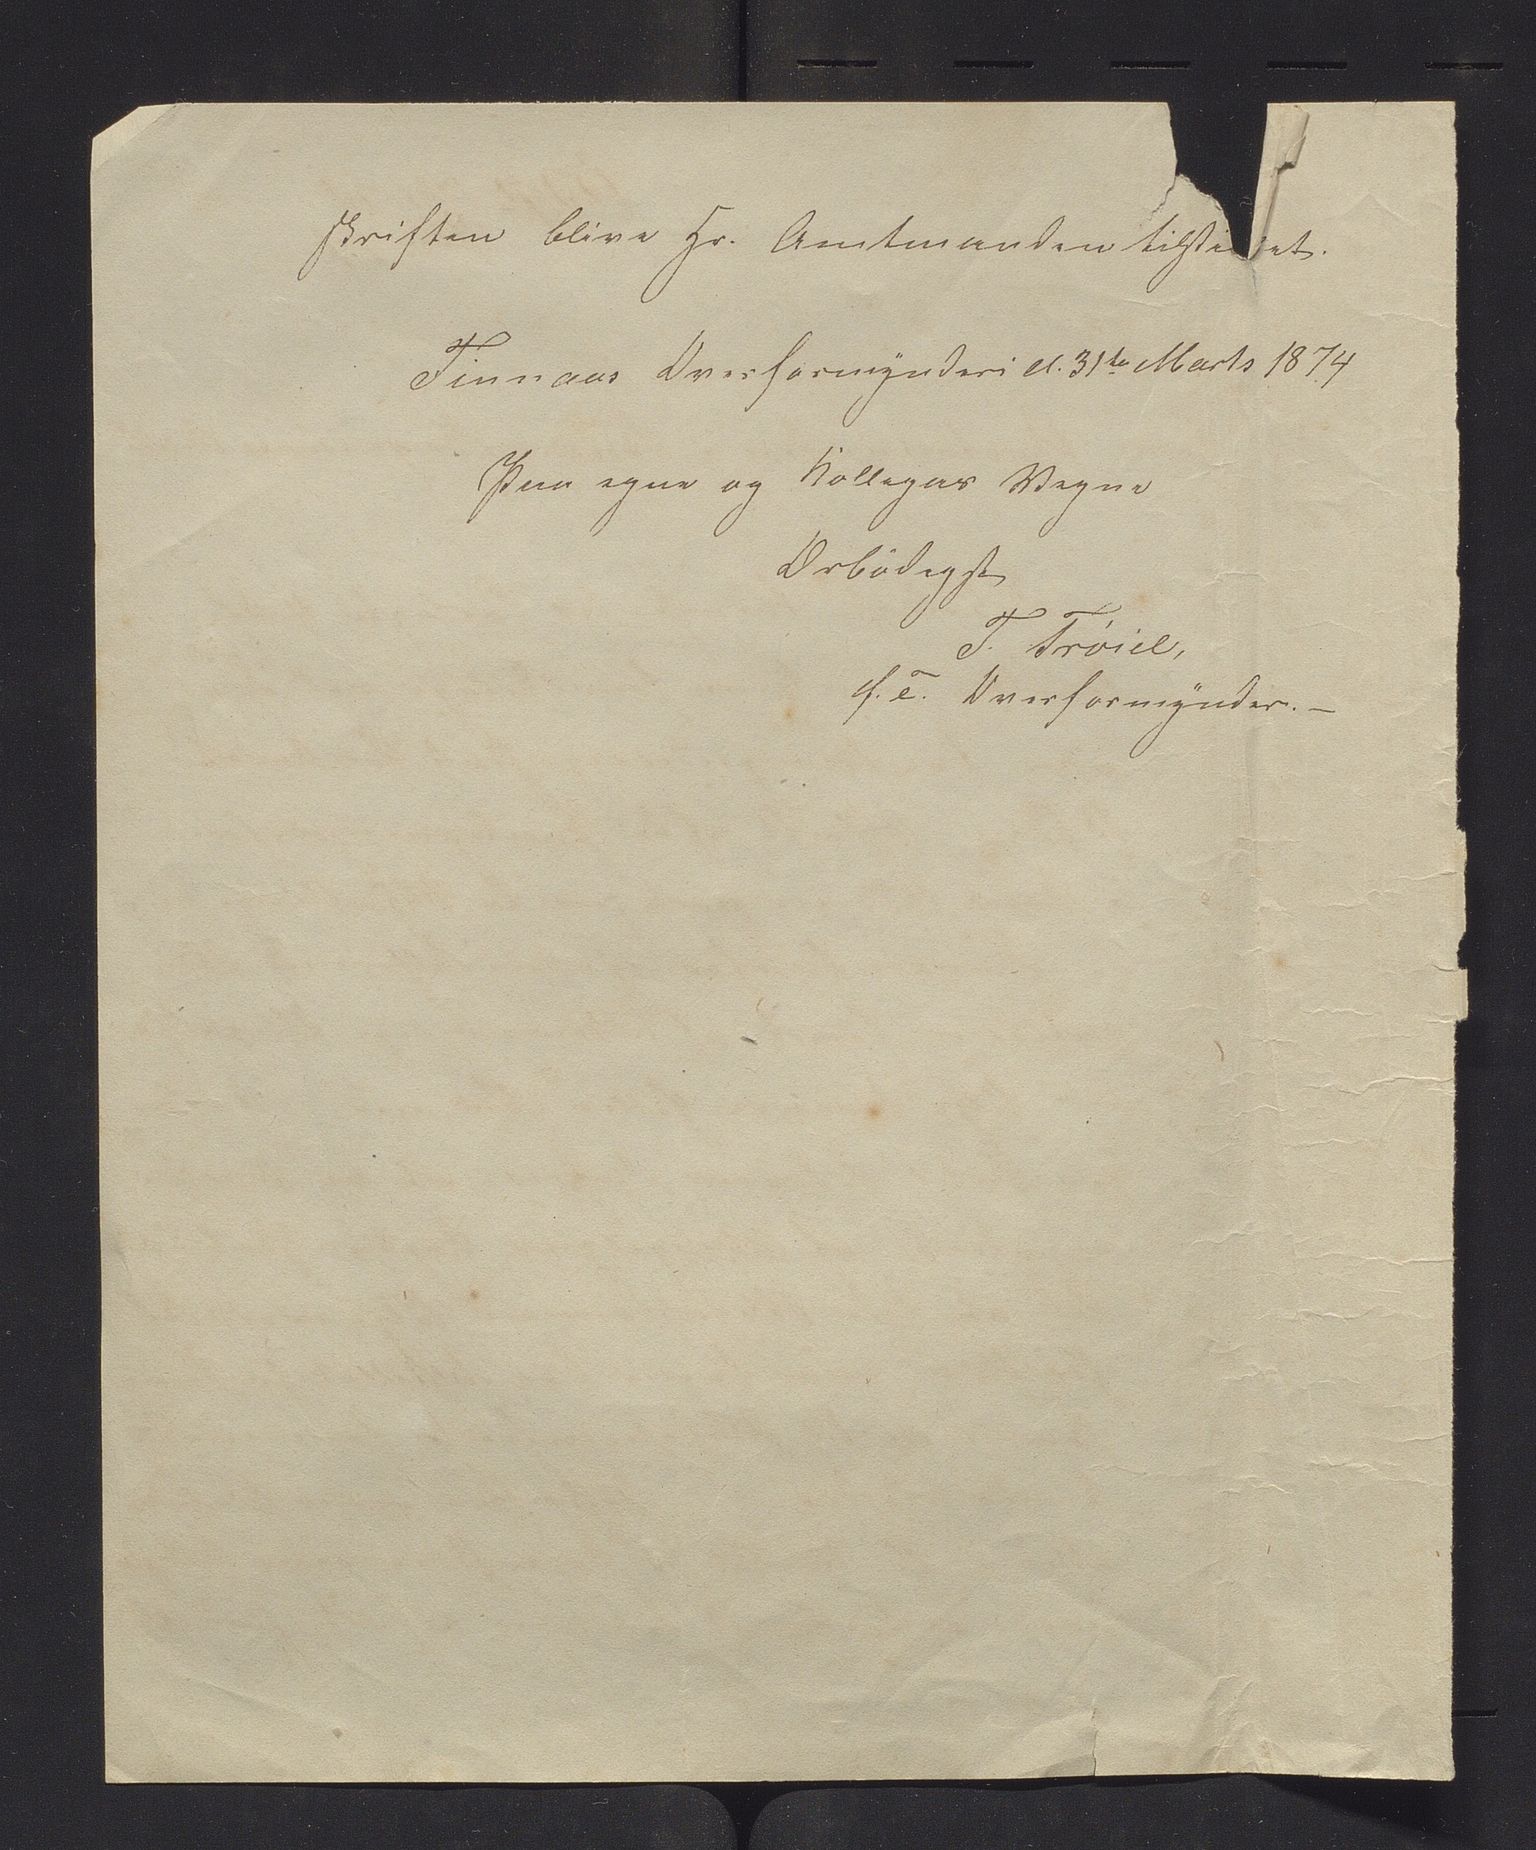 skriften blive Hr. Amtmanden tilstillet.
Finnaas Overformynderi d. 31te Marts 1874
Paa egne og Kollegas Vegne
Ærbödigst
T. Tröiel,
f. T. Overformynder. —